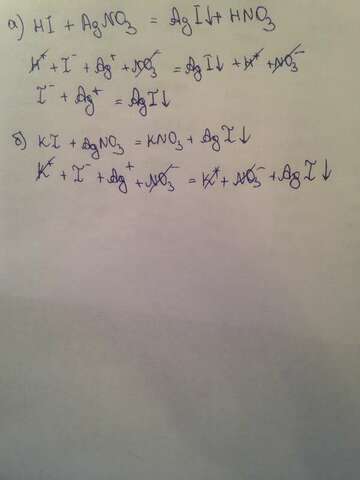 а) HI + AgNO₃ = AgI↓ + HNO₃
H⁺ + I⁻ + Ag⁺ + NO₃⁻ = AgI↓ + H⁺ + NO₃⁻
I⁻ + Ag⁺ = AgI↓
б) KI + AgNO₃ = KNO₃ + AgI↓
K⁺ + I⁻ + Ag⁺ + NO₃⁻ = K⁺ + NO₃⁻ + AgI↓